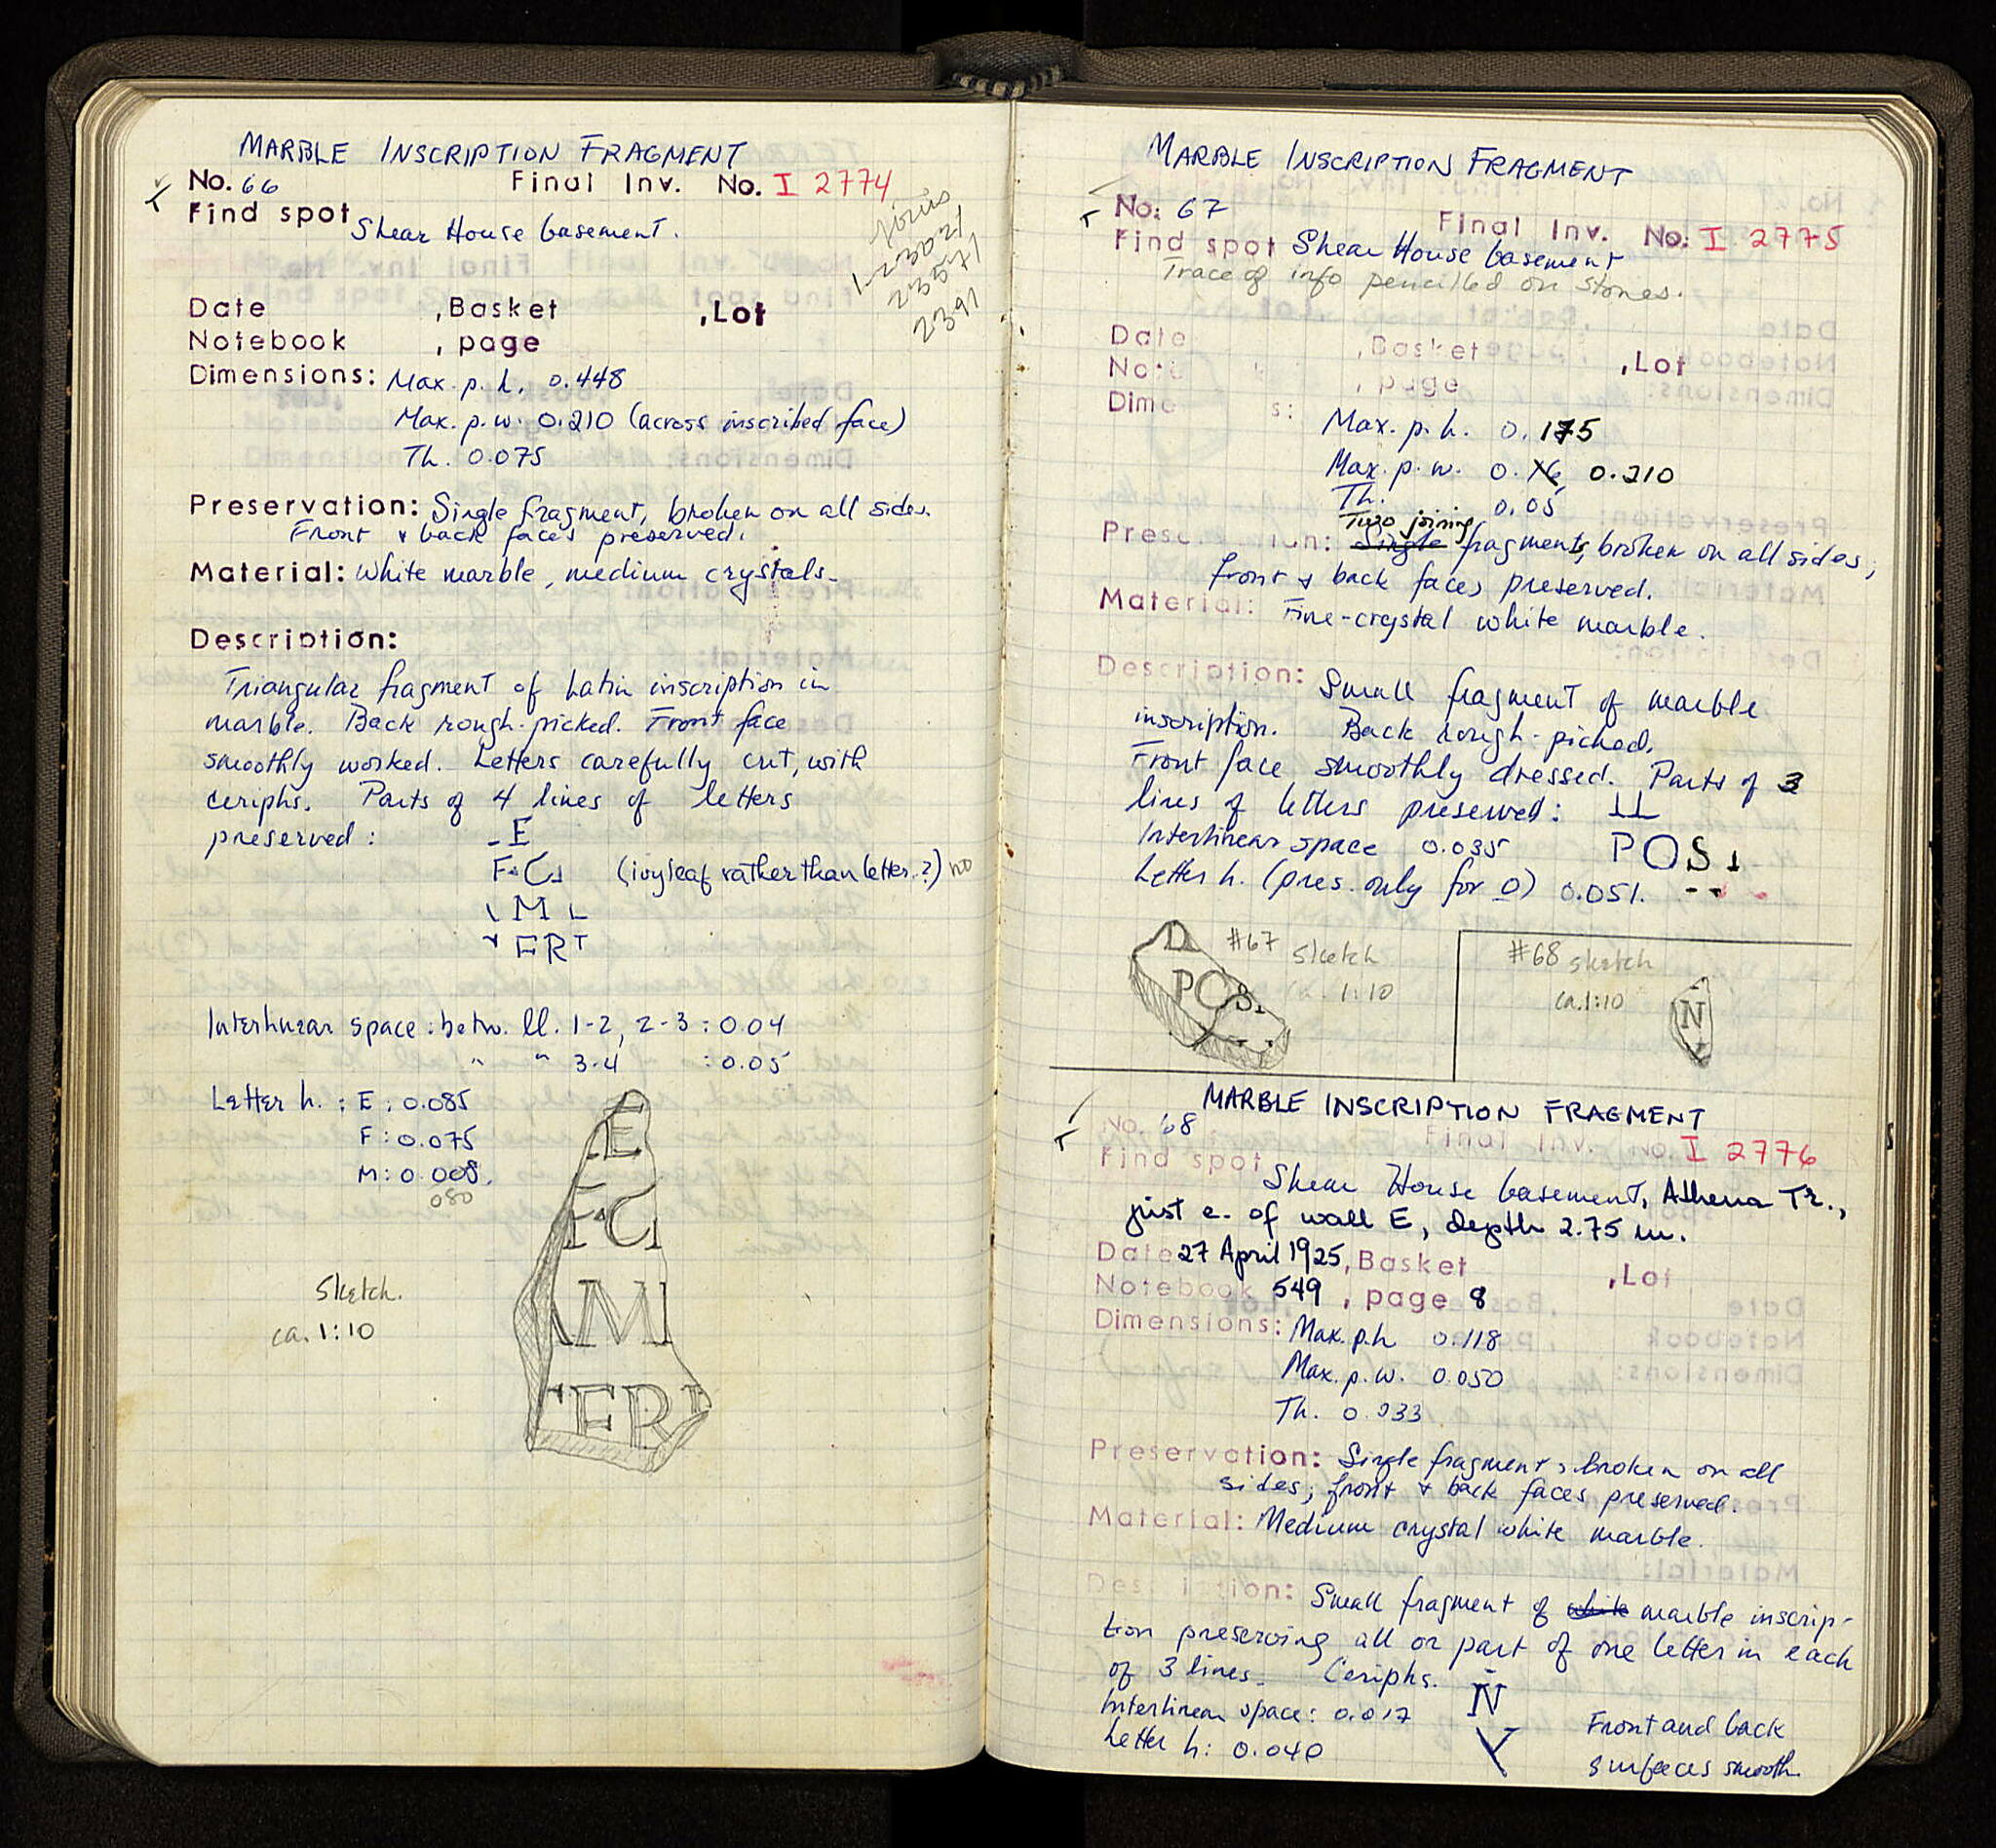 MARBLE INSCRIPTION FRAGMENT
No. 66 Final Inv. No. I 2774
Find spot Shear House basement.
joins
2322-1
2354
2391
Date , Basket , Lot
Notebook , page
Dimensions: Max. p. h. 0.448
Max. p. w. 0.210 (across inscribed face)
Th. 0.075
Preservation: Single fragment, broken on all sides.
Front & back faces preserved.
Material: White marble, medium crystals.
Description:
Triangular fragment of Latin inscription in
marble. Back rough-picked. Front face
smoothly worked. Letters carefully cut, with
ceriphs. Parts of 4 lines of letters
preserved: E
F·C (ivyleaf rather than letter?) no
M
ERT
Interlinear space: betw. ll. 1-2, 2-3: 0.04
" " 3-4 : 0.05
Letter h.: E: 0.085
F: 0.075
M: 0.008.
080
Sketch.
ca. 1:10
E
FC
M
ER
MARBLE INSCRIPTION FRAGMENT
No. 67
Final Inv. No. I 2775
Find spot Shear House basement
Trace of info pencilled on stones.
Date , Basket , Lot
Note , page
Dime s: Max. p. h. 0.175
Max. p. w. 0.16 0.210
Th. 0.05
Two joining
Presc ion: Single fragments, broken on all sides;
front & back faces preserved.
Material: Fine-crystal white marble.
Description: Small fragment of marble
inscription. Back rough-picked.
Front face smoothly dressed. Parts of 3
lines of letters preserved:
Interlinear space 0.035 POS
Letter h. (pres. only for O) 0.051.
#67 sketch
ca. 1:10
POS
#68 sketch
ca. 1:10
N
MARBLE INSCRIPTION FRAGMENT
No. 68 Final Inv. No. I 2776
Find spot Shear House basement, Athena Tr.,
just e. of wall E, depth 2.75 m.
Date 27 April 1925, Basket , Lot
Notebook 549 , page 8
Dimensions: Max. p. h 0.118
Max. p. w. 0.050
Th. 0.033
Preservation: Single fragment, broken on all
sides; front & back faces preserved.
Material: Medium crystal white marble.
Des iption: Small fragment of white marble inscrip-
tion preserving all or part of one letter in each
of 3 lines. Ceriphs.
Interlinear space: 0.017 N
Letter h: 0.040 Y
Front and back
surfaces smooth.